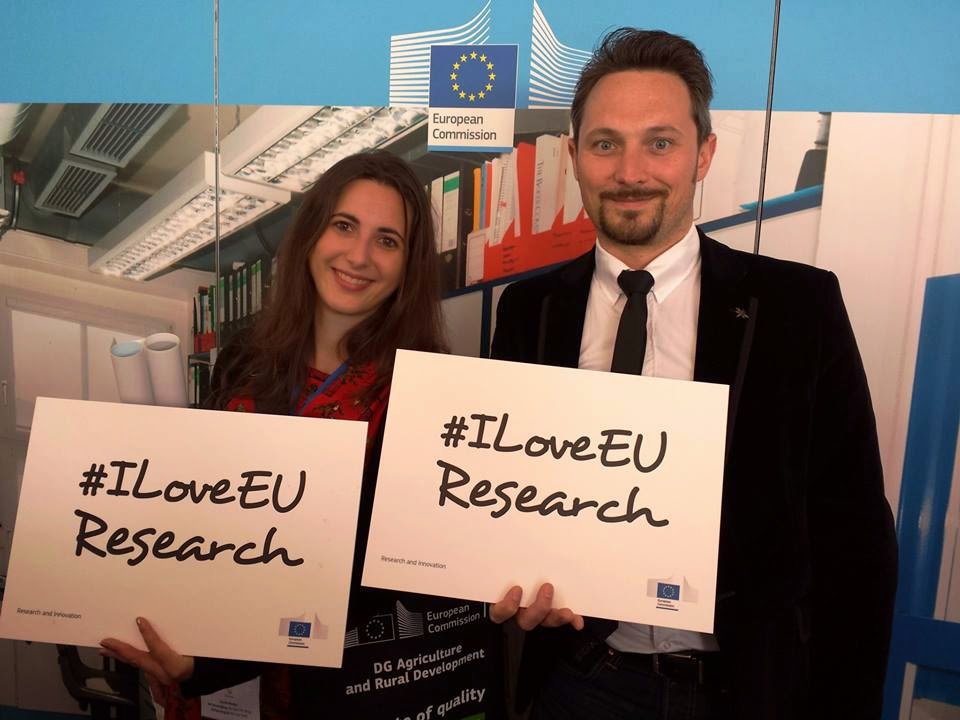 European
Commission
#ILoveEU
Research
Research and Innovation
European
Commission
#ILoveEU
Research
Research and Innovation
European
Commission
European
Commission
DG Agriculture
and Rural Development
of quality